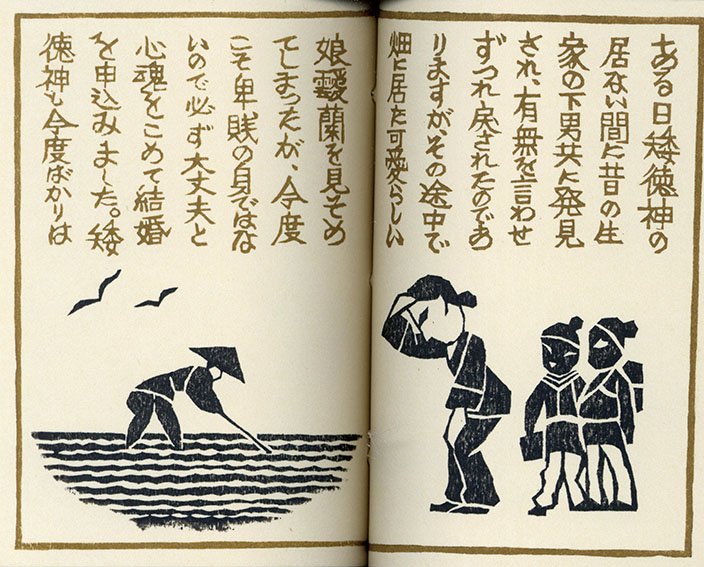 ある日矮徳神の
居ない間に昔の生
家の下男共に発見
され、有無を言わせ
ずつれ戻されたのであ
りますが、その途中で
畑に居た可愛らしい
娘蘭を見そめ
てしまったが、今度
こそ卑賎の身ではな
いので必ず大丈夫と
心魂をこめて結婚
を申込みました。矮
徳神も今度ばかりは